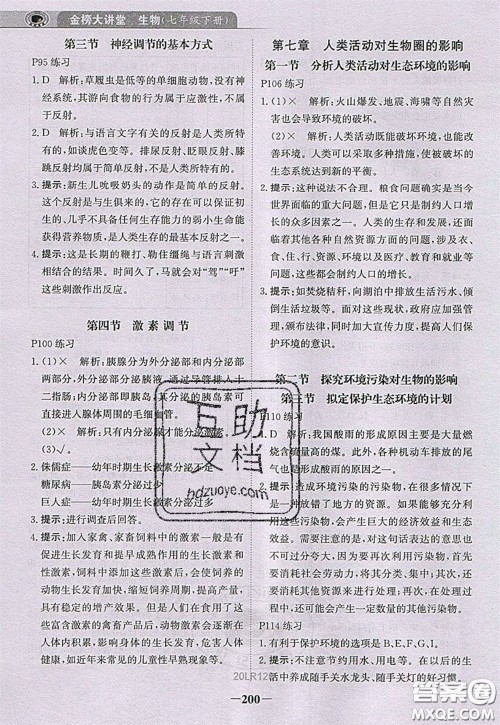 金榜大讲堂 生物(七年级下册)
第三节 神经调节的基本方式
P95 练习
1. D 解析:草履虫是低等的单细胞动物,没有神经系
统,其游向食物的行为不具有神经调节的特点,所以不
属于反射。
2. D 解析:与语言文字有关的反射是人类所特有的,
如谈虎色变等。排尿反射、眨眼反射、膝跳反射、缩手
反射均属于简单反射,不是人类所特有的。
3. 提示:新生儿吮吸奶头的动作是简单的反射。这种
反射是与生俱来的。它的存在可以保证初
生儿不具备任何生存能力的
获得营养物质,是人类生存的最基本反射之一。
4. 提示:这是长期的鞭打、勒住缰绳与语言文字刺激
相结合的结果。时间久了,马就会对“驾”“吁”
这些刺激作出反应。
第四节 激素调节
P100 练习
1. (1)× 解析:胰腺分为外分泌部和内分泌部两
部分,外分泌部分泌胰液,通过导管排入十
二指肠;内分泌部(胰岛)分泌的胰岛素可
直接进入胰腺周围的毛细血管。
(2)× 解析:只有内分泌腺才能分泌激素。
(3)√。
2. 侏儒症——幼年时期生长激素分泌不足
糖尿病——胰岛素分泌不足
巨人症——幼年时期生长激素分泌过多
3. 提示:进行调查后回答。
4. 提示:加入家禽、家畜饲料中的激素一般是有
促进生长发育和提早成熟作用的生长激素和
性激素,
会
富含激素的畜禽产品,会影响人的生长发育,
如近年来屡屡出现的儿童性早熟现象等。
第七章 人类活动对生物圈的影响
第一节 分析人类活动对生态环境的影响
P106 练习
1. (1)× 解析:火山爆发、地震、海啸等自然灾害也会
导致环境的破坏。
(2)× 解析:人类活动既能破坏环境,也能
改善环境。人类可以采取多种措施,使生态
系统达到新的平衡。
2. 提示:这种说法不合理。粮食问题确实是当今世界
面临的重大问题,但是它只是制约人口增长
的众多因素之一。人类的生存和发展,还面
临着其他许多自然资源方面的问题,此外,
还有社会资源方面的问题,以及医疗、教育和就业等
方面的问题,这些都制约着人口的增长。
3. 提示:如焚烧秸秆,向湖泊中排放生活污水、倾
倒生活垃圾等。
第二节 探究环境污染对生物的影响
第三节 拟定保护生态环境的计划
P110 练习
1. × 解析:我国酸雨的形成原因主要是大量
燃烧含硫量高的煤。此外,各种机动车排放
的尾气也是形成酸雨的重要原因之一。
2. 提示:造成环境污染的许多污染物,实际上
是一种放错了地方的资源,如果利用这些污染物,
会产生巨大的经济效益和生态
效益。需要注意的是,对这句话不能
断章取义。因为要再次利用污染物,首先
要消耗人力将其分类、集中,然后
要消耗其他资源进行处理,在处理过程中,
还可能会产生一定数量的其他污染物。
P114 练习
1. 有利于保护环境的选项是 B、D、F、G、I。
2. 提示:
活中养成随手关水龙头、随手关灯的好习惯。
互助
文档
hdzuoye.com
20LR12
200
答案圈
MXQE.COM